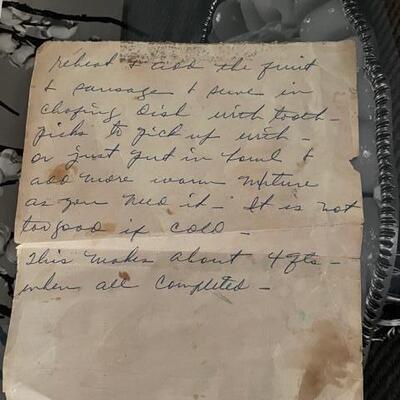 reheat & add the fruit
& sausage & serve in
chafing dish with tooth-
picks to pick up with -
or just put in bowl &
add more warm mixture
as you need it - It is not
too good if cold -
This makes about 4 qts -
when all completed -